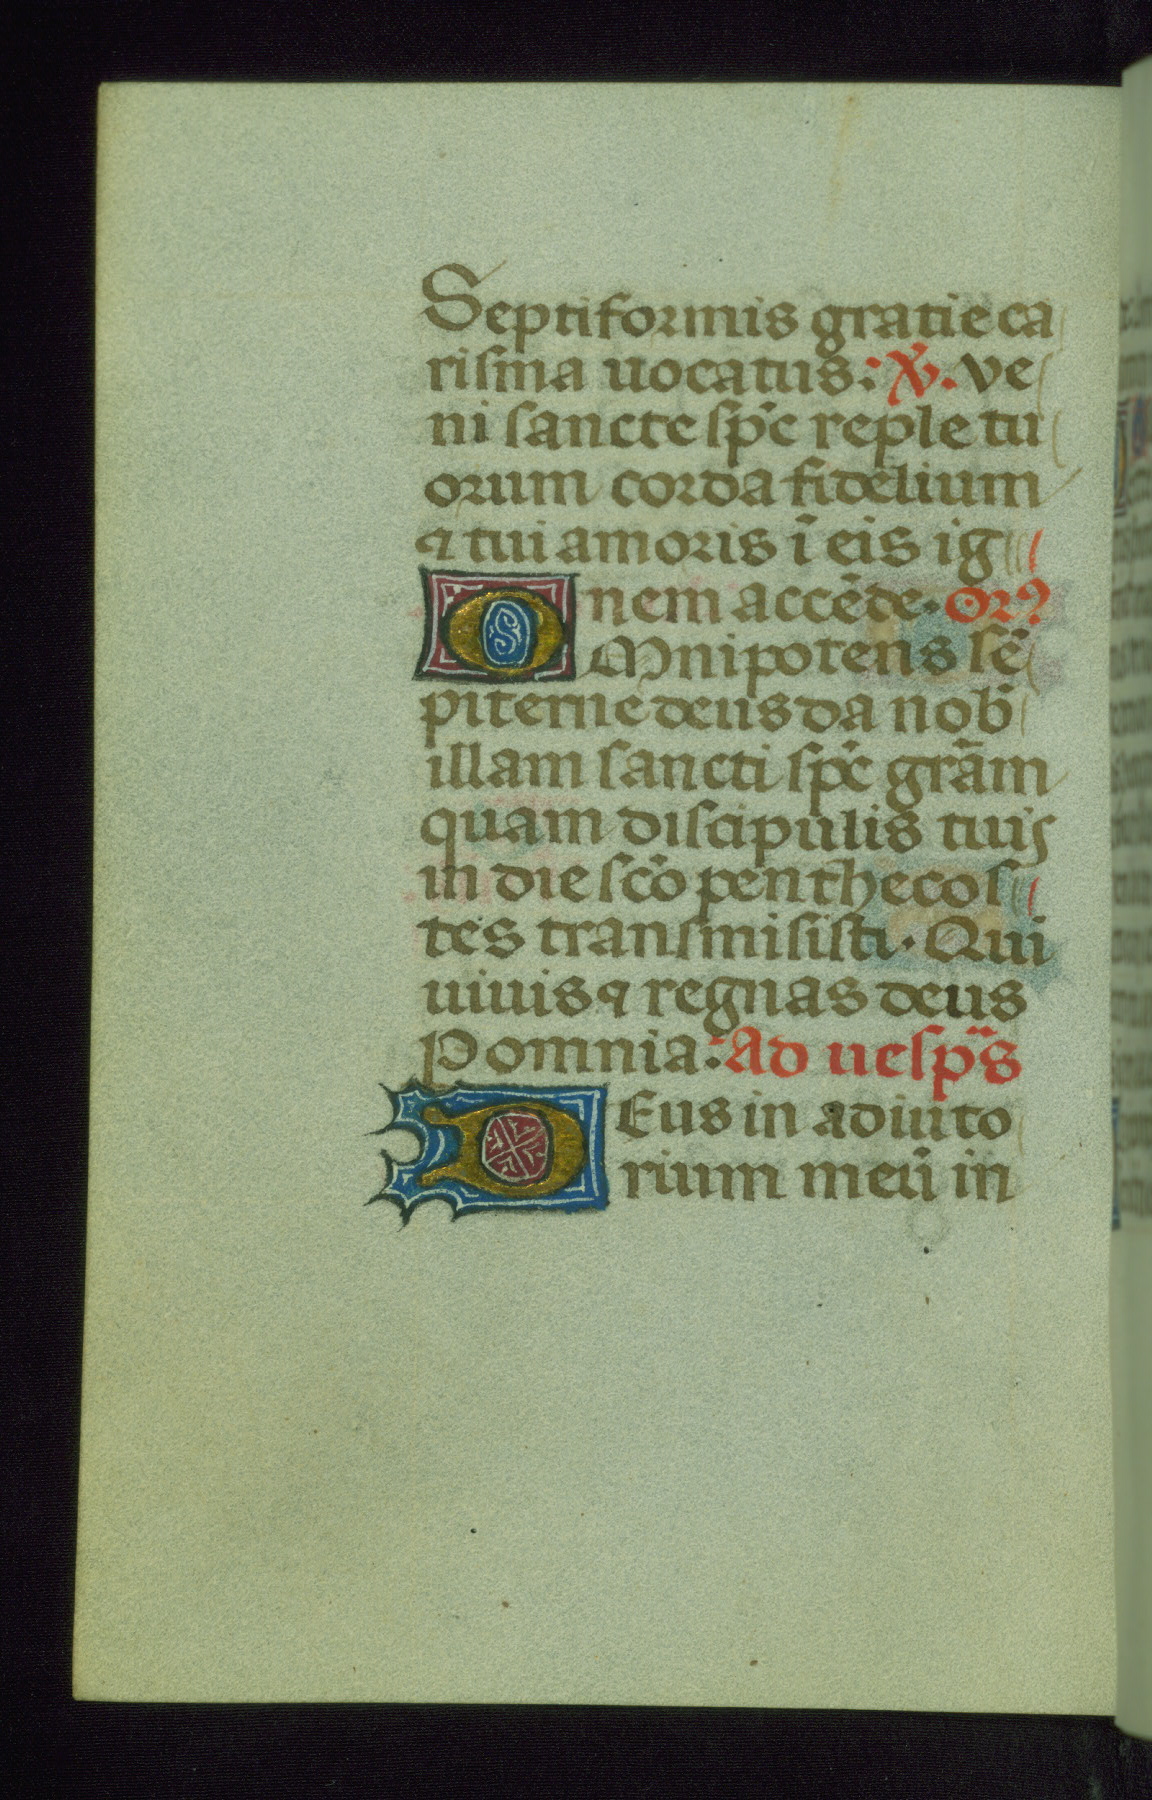 Septiformis gratie ca
risma uocatus: ℣. ve
ni sancte sp̄c reple tu
orum corda fidelium
⁊ tui amoris ī eis ig
nem accēde. Or̄ꝰ
OMnipotens sē
piterne deus da nob̄
illam sancti sp̄c grām
quam discipulis tuis
in die sc̄o penthecos
tes transmisisti. Qui
uiuis ⁊ regnas deus
P omnia. Ad uesp̄s
DEus in adiuto
rium meū in